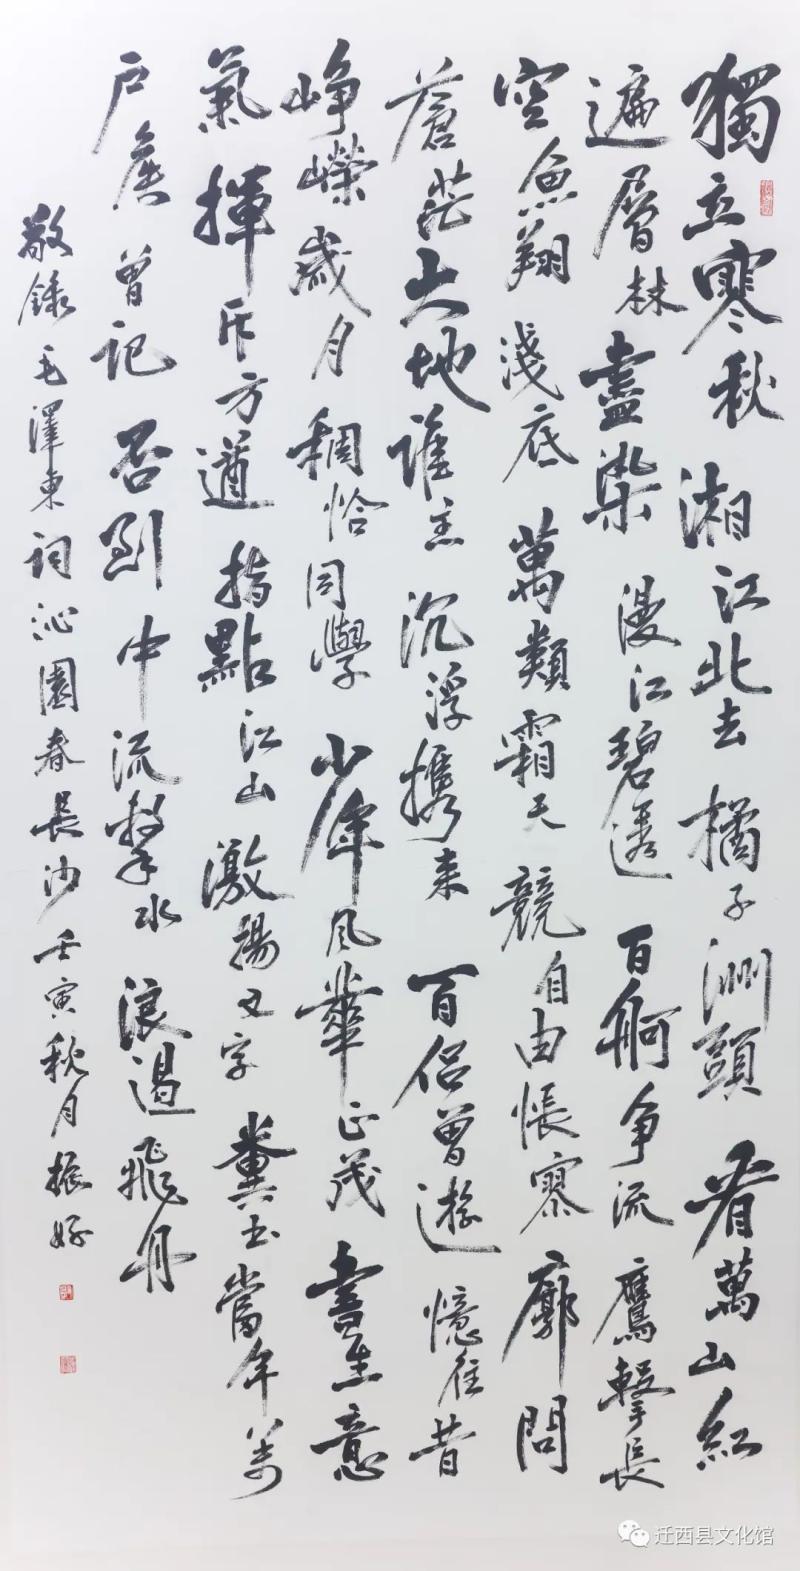 獨立寒秋湘江北去橘子洲頭看萬山紅
遍層林盡染漫江碧透百舸争流鷹擊長
空魚翔淺底萬類霜天競自由悵寥廓問
蒼茫大地誰主沉浮携來百侣曾遊憶往昔
崢嶸歲月稠恰同學少年風華正茂書生意
氣揮斥方遒指點江山激揚文字糞土當年萬
户侯曾記否到中流擊水浪遏飛舟
敬錄毛澤東詞沁園春長沙壬寅秋月振好
迁西县文化馆